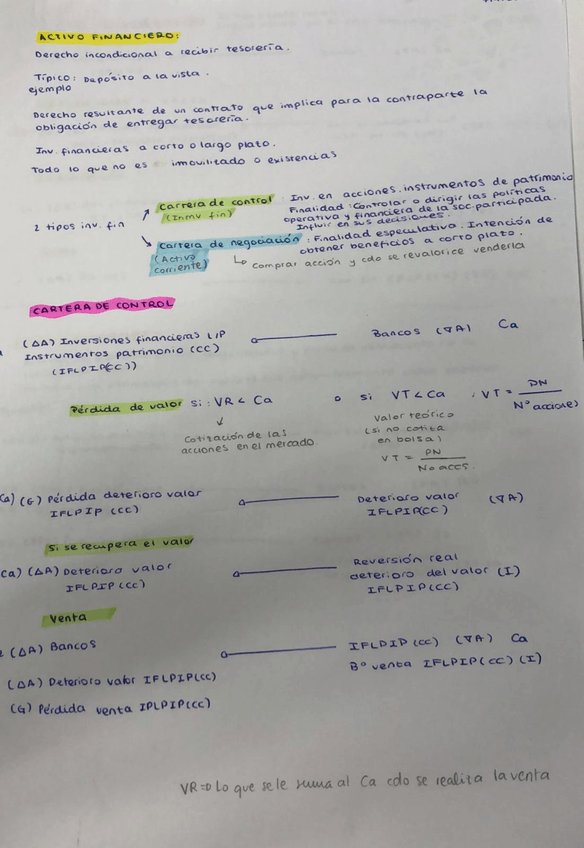 ACTIVO FINANCIERO:
Derecho incondicional a recibir tesorería.
Típico: Depósito a la vista.
ejemplo
Derecho resultante de un contrato que implica para la contraparte la
obligación de entregar tesorería.
Inv. financieras a corto o largo plazo.
Todo lo que no es inmovilizado o existencias
2 tipos inv. fin
Carrera de control : Inv. en acciones. instrumentos de patrimonio
(Inmv fin) Finalidad: Controlar o dirigir las políticas
operativa y financiera de la soc. participada.
Influir en sus decisiones.
Cartera de negociación : Finalidad especulativa. Intención de
(Activo obtener beneficios a corto plazo.
corriente) comprar acción y cdo se revalorice venderla
CARTERA DE CONTROL
(ΔA) Inversiones financieras L/P Bancos (∇A) Ca
Instrumentos patrimonio (CC)
(IFLPIP(CC))
Pérdida de valor si: VR < Ca o si VT < Ca : VT = PN / Nº acciones)
↓
Cotización de las
acciones en el mercado
Valor teórico
(si no cotiza
en bolsa)
VT = PN / No accs.
Ca) (G) Pérdida deterioro valor Deterioro valor (∇A)
IFLPIP (CC) IFLPIP(CC)
Si se recupera el valor
Ca) (ΔA) Deterioro valor Reversión real
IFLPIP (CC) deterioro del valor (I)
IFLPIP (CC)
Venta
(ΔA) Bancos IFLPIP (CC) (∇A) Ca
(ΔA) Deterioro valor IFLPIP(CC) Bº venta IFLPIP(CC) (I)
(G) Pérdida venta IPLPIP(CC)
VR => Lo que se le suma al Ca cdo se realiza la venta